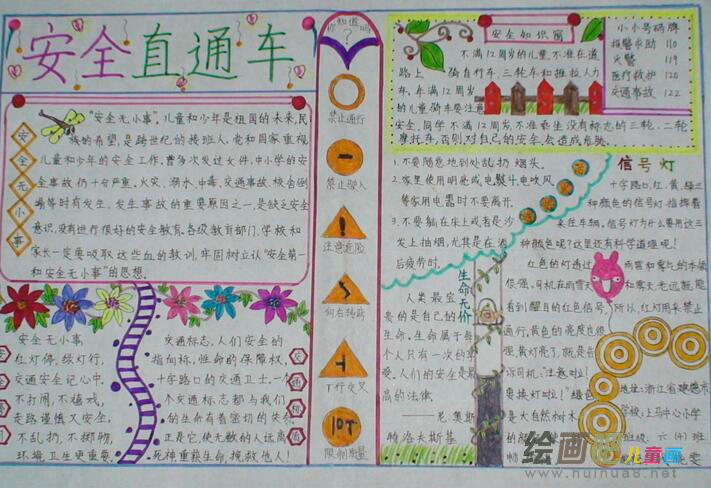 安全直通车
安全无小事
"安全无小事"。儿童和少年是祖国的未来,民
族的希望,是跨世纪的接班人。党和国家重视
儿童和少年的安全工作。曾多次发过文件,中小学的安
全事故仍十分严重。火灾、溺水、中毒、交通事故、校舍倒
塌等时有发生。发生事故的重要原因之一,是缺乏安全
意识,没有进行很好的安全教育。各级教育部门、学校和
家长一定要吸取这些血的教训,牢固树立认"安全第一
和安全无小事"的思想。
安全无小事
红灯停,绿灯行,
交通安全记心中,
不打闹,不嬉戏,
走路谨慎又安全,
不乱扔,不掷物,
环境卫生更重要。
交通标志,人们安全的
指向标,性命的保障权,
十字路口的交通卫士,一个
个交通标志都与我们
的生命有着密切的关系,
正是它,使无数的人远离
死神重获生命,挽救他人!
你知道吗
?
禁止通行
禁止驶入
注意危险
向右转弯
丁行交叉
10T
限制质量
安全知识窗
不满12周岁的儿童,不准在道
路上 骑自行车,三轮车和推拉人力
车,年满12周岁
的儿童骑车要注意
安全,同学不满12周岁,不准乘坐没有标志的三轮、二轮
摩托车,否则对自己的安全会造成危胁。
小小号码牌
报警求助 110
火警 119
医疗救护 120
交通事故 122
1.不要随意地到处乱扔烟头。
2.家里使用明亮或电熨斗、电吹风
等家用电器时不要离开。
3.不要躺在床上或者是沙
发上抽烟,尤其是在酒
后疲劳时。
生命无价
人类最宝
贵的是自己的
生命,生命属于每
个人只有一次的幸
爱。人们的安全是最
高的法律。
——尼·奥斯
特洛夫斯基
信号灯
十字路口,红、黄、绿三
种颜色的信号灯,指挥着
来往车辆。信号灯为什么要用这三
种颜色呢?这里还有科学道理呢!
红色的灯透过
雨雪和雾气的本领
很强。司机在雨雪天
和雾天老远就能
看到醒目的红色信号,
所以,红灯用来禁止
通行。黄色的亮度也很
强,黄灯亮了,就是告
诉司机:"注意啦!
要换灯啦!"绿色
是大自然树木
地址:浙江省建德市
学校:上马中心小学
班级:六(1)班
绘画吧儿童画
www.huihua8.net